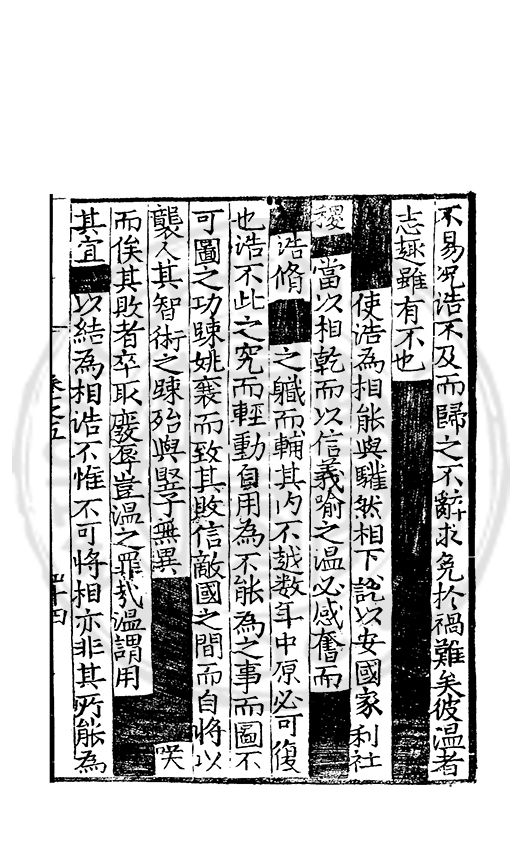 不易況浩不及而歸之不辭求免於禍難矣彼溫者
志趣雖有不也
使浩為相能與驩然相下說以安國家利社
稷當以相乾而以信義喻之溫必感奮而
浩脩之職而輔其內不越数年中原必可復
也浩不此之究而輕動自用為不能為之事而圖不
可圖之功踈姚襄而致其敗信敵國之間而自將以
襲人其智術之踈殆與豎子無異
而俟其敗者卒取廢辱豈溫之罪哉溫謂用
其宜以結為相浩不惟不可將相亦非其所能為
卷之五
四十四